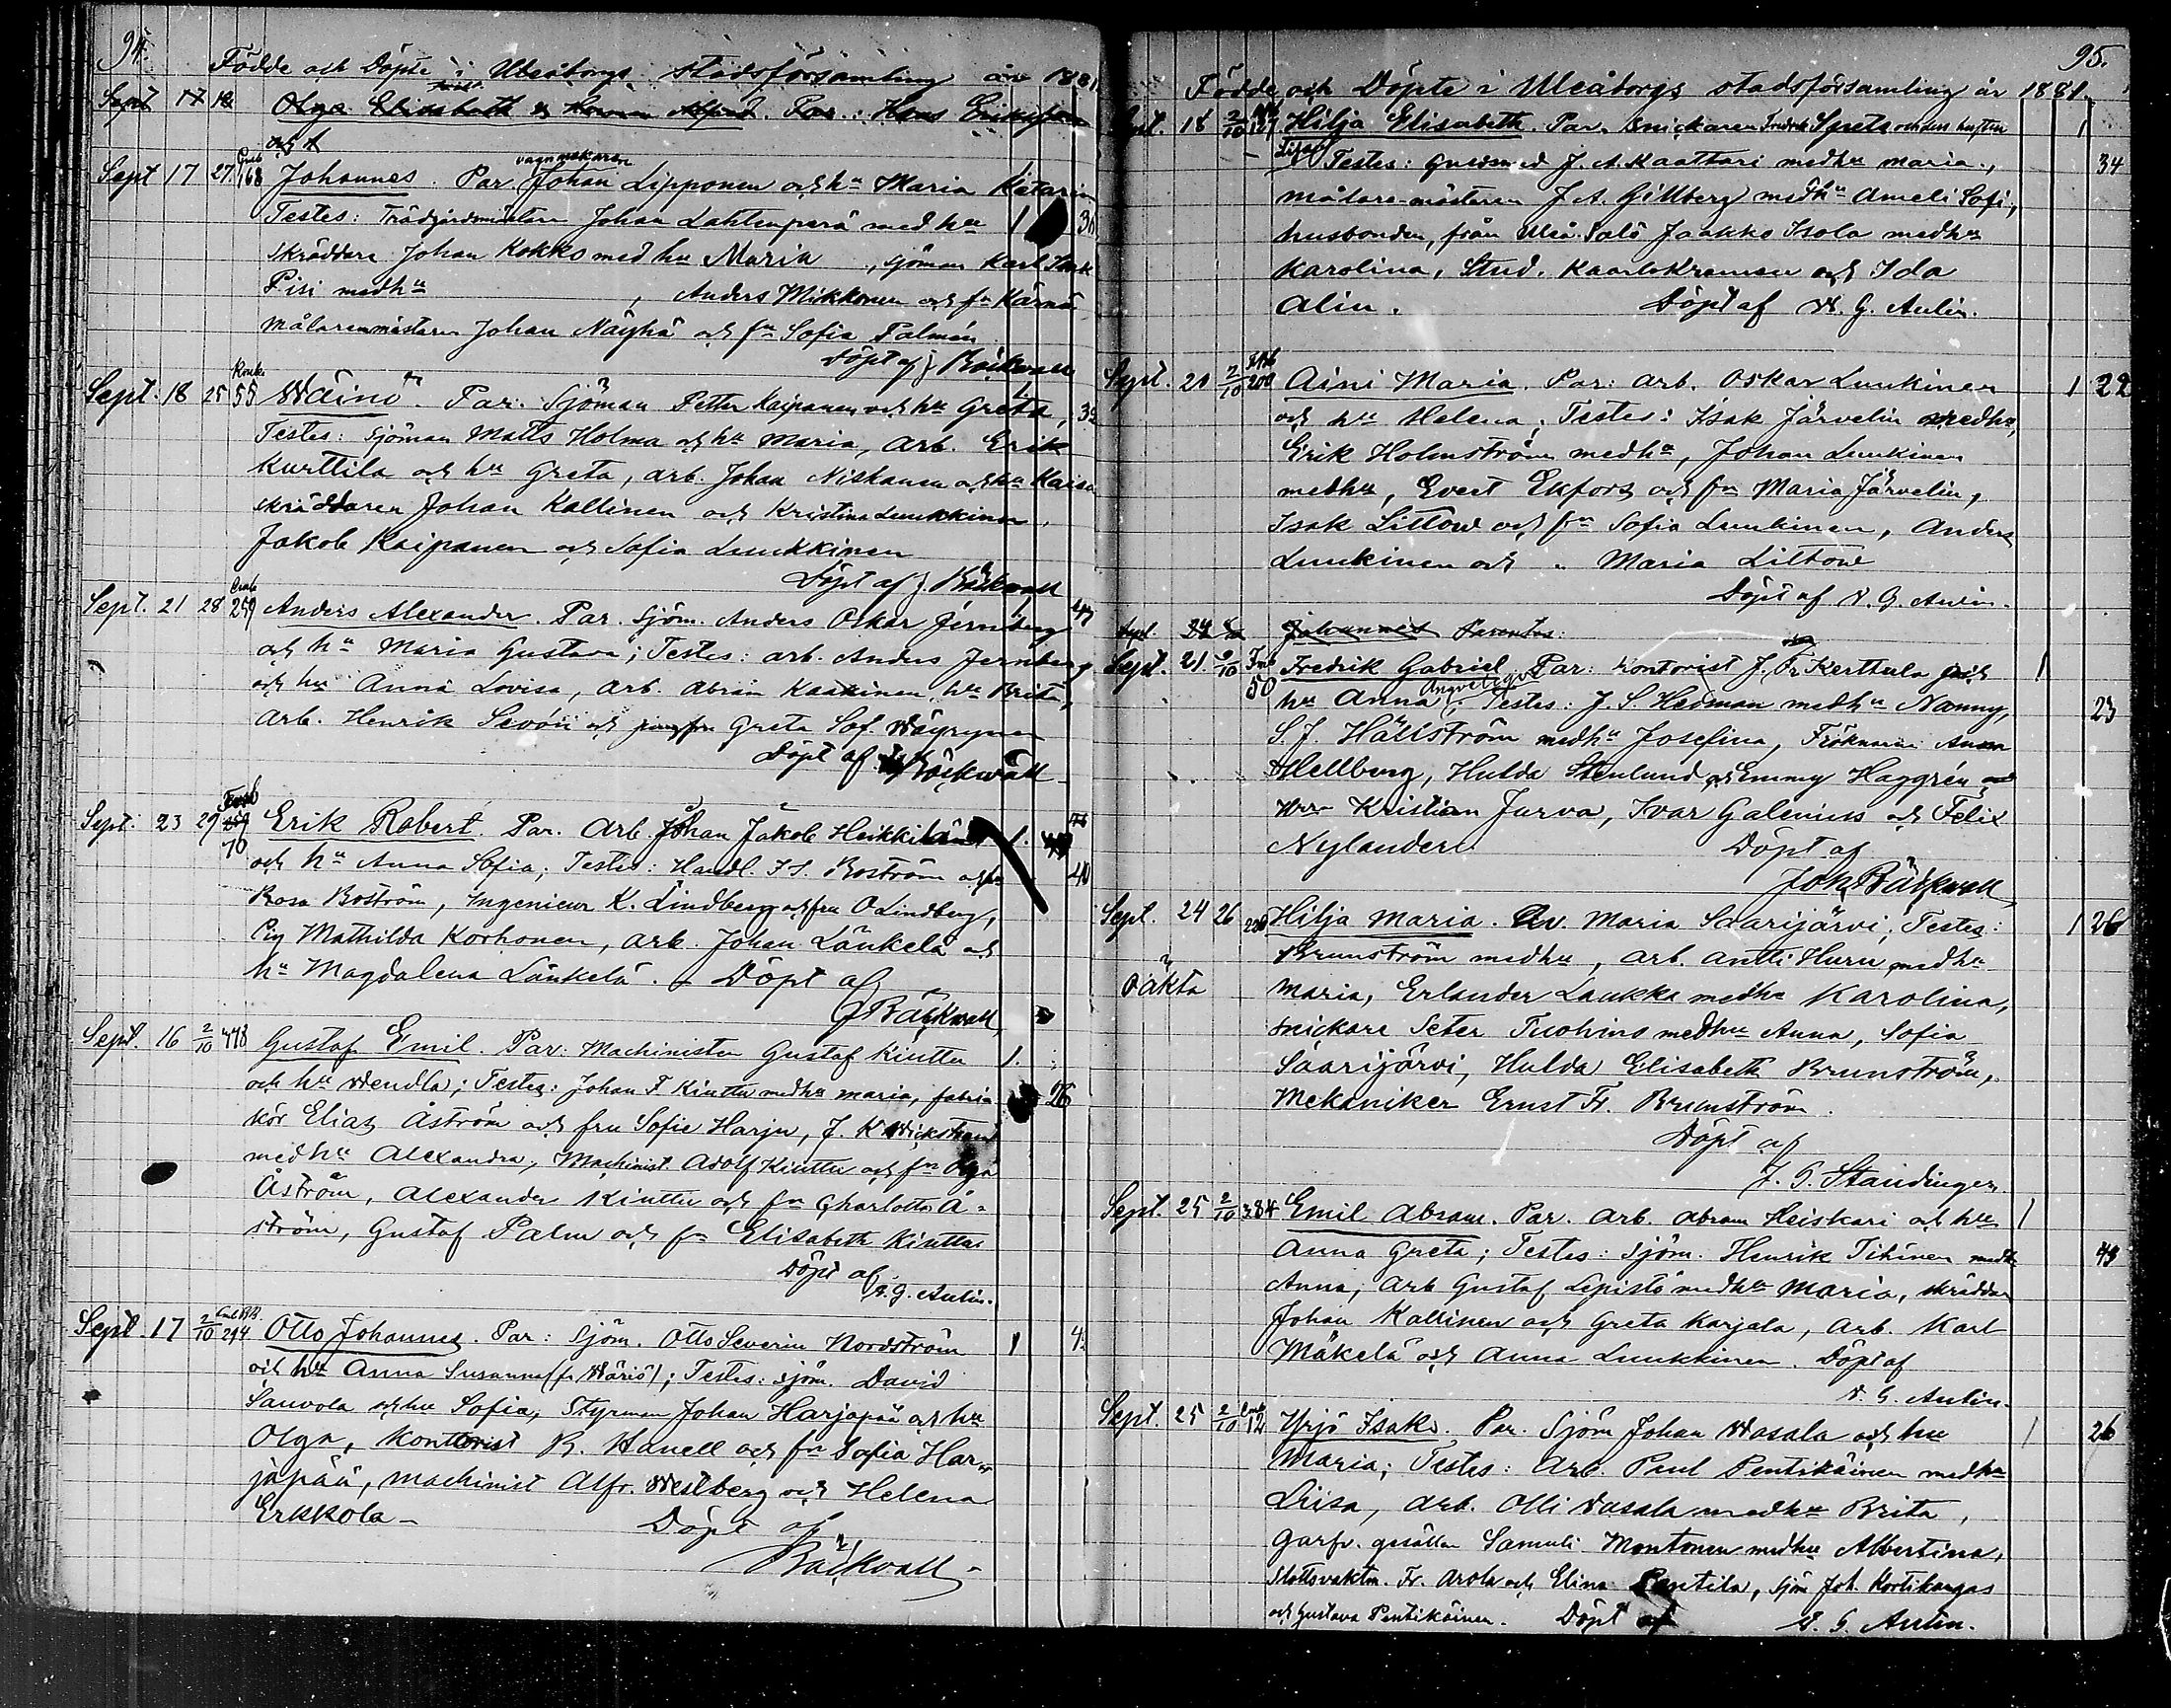 94.
Födde och Döpte i Uleåborgs stadsförsamling år 1881
Sept 17 18 Olga Elisabeth Par.: Hans Eriksson
och
Sept 17 27 168 Johannes. Par. vagnmakaren Johan Lipponen och hu Maria Katarina
Testes: Trädgårdsmästare Johan Lahtenperä med hu 1
skräddare Johan Kokko med hu Maria, sjöman Karl Isak
Pisi med hu , Anders Mikkonen och fn Kärnä,
Målaremästaren Johan Näyhä och fn Sofia Palmén
Döpt af J Bäckvall
Sept. 18 25 55 Wäinö. Par. Sjöman Petter Kaipanen och hu Greta, 32
Testes: Sjöman Matts Holma och hu Maria, Arb. Erik
Kurttila och hu Greta, arb. Johan Niskanen och hu Kaisa
skräddaren Johan Kallinen och Kristina Luukkinen.
Jakob Kaipanen och Sofia Luukkinen
Döpt af J. Bäckvall
Sept. 21 28 259 Anders Alexander. Par. Sjöm. Anders Oskar Jernberg
och hu Maria Gustava; Testes: arb. Anders Jernberg
och hu Anna Lovisa, arb. Abram Kaakinen hu Brita,
Arb. Henrik Sevón och jungfru Greta Sof. Wäyrynen
Döpt af J Bäckwall
Sept. 23 29 70 Erik Robert. Par. Arb. Johan Jakob Heikkilä 1.
och hu Anna Sofia; Testes: Handl. J. S. Boström och fru 40
Rosa Boström, Ingenieur K. Lindberg och fru O Lindberg,
Pig Mathilda Korhonen, arb. Johan Länkelä och
hu Magdalena Länkelä. Döpt af
J Bäckvall
Sept. 16 2/10 448 Gustaf Emil. Par: Machinisten Gustaf Kinttu 1.
och hu Wendla; Testes: Johan F Kinttu med hu Maria, fabri- 26
kör Elias Åström och fru Sofie Harju, J. K Wickstrand
med hu Alexandra, Machinist Adolf Kinttu och fn Olga
Åström, Alexander Kinttu och fn Charlotta Å-
ström, Gustaf Palm och fn Elisabeth Kinttu
Döpt af
V. G. Aulin.
Sept. 17 2/10 294 Otto Johannes. Par: Sjöm. Otto Severin Nordström 1
och hu Anna Susanna (f. Wäriö); Testes: sjöm. David
Sauvola och hu Sofia, Styrman Johan Harjapää och hu
Olga, Kontorist R. Hanell och fn Sofia Har-
japää, machinist Alfr. Westberg och Helena
Erkkola - Döpt af
Bäckvall
95.
Födde och Döpte i Uleåborgs stadsförsamling år 1881.
Sept. 18 2/10 Hilja Elisabeth. Par. Snickaren Fredrik Spets och dess hustru 1
Lisa Testes: Guldsmed J. A. Kaattari med hu Maria, 34
målare-mästaren J. A. Gillberg med hu Ameli Sofi,
husbonden, från Uleå-Salo Jaakko Isola med hu
Karolina, Stud. Kaarlo Kremen och Ida
Alin. Döpt af V. G. Aulin.
Sept. 21 2/10 200 Aini Maria. Par: Arb. Oskar Luukinen 1 22
och hu Helena; Testes: Isak Järvelin med hu,
Erik Holmström med hu, Johan Luukinen
med hu, Evert Ekfors och fn Maria Järvelin,
Isak Littow och fn Sofia Luukinen, Anders
Luukinen och " Maria Littow
Döpt af V. G. Aulin.
Sept. Johannes Parentes:
Sept. 21. 9/10 50 Fredrik Gabriel. Par: kontorist J. Fr. Kerttula och 1
hu Anna. Testes: J. S. Hedman med hu Nanny, 23
S. J. Hällström med hu Josefina, Fröknarna Anna
Hellberg, Hulda Stenlund, och Emmy Haggrén och
Hrr Kristian Jurva, Ivar Galenius och Felix
Nylander Döpt af
Joh. Bäckvall
Sept. 24 26 Hilja Maria. Av. Maria Saarijärvi; Testes: 1 26
oäkta Brunström med hu, arb. Antti Huru med hu
Maria, Erlander Laukka med hu Karolina,
snickare Peter Tuohino med hu Anna, Sofia
Saarijärvi, Hulda Elisabeth Brunström,
Mekaniker Ernst Fr. Brunström.
Döpt af
J. G. Standinger.
Sept. 25 2/10 384 Emil Abram. Par. Arb. Abram Heiskari och hu 1
Anna Greta; Testes: Sjöm. Henrik Tihinen med hu 43
Anna, Arb Gustaf Lepistö med hu Maria, skräddar
Johan Kallinen och Greta Karjala, Arb. Karl
Mäkelä och Anna Luukkinen. Döpt af
V. G. Aulin.
Sept. 25 2/10 12 Yrjö Isak. Par. Sjöm Johan Wasala och hu 1 26
Maria; Testes: Arb. Paul Pentikäinen med hu
Liisa, Arb. Olli Vasala med hu Brita,
Garfv. gesällen Samuli Montonen med hu Albertina,
Slottsvaktm. Fr. Arola och Elina Penttilä, sjöm Joh. Kortikangas
och Gustava Pentikäinen. Döpt af V. G. Aulin.